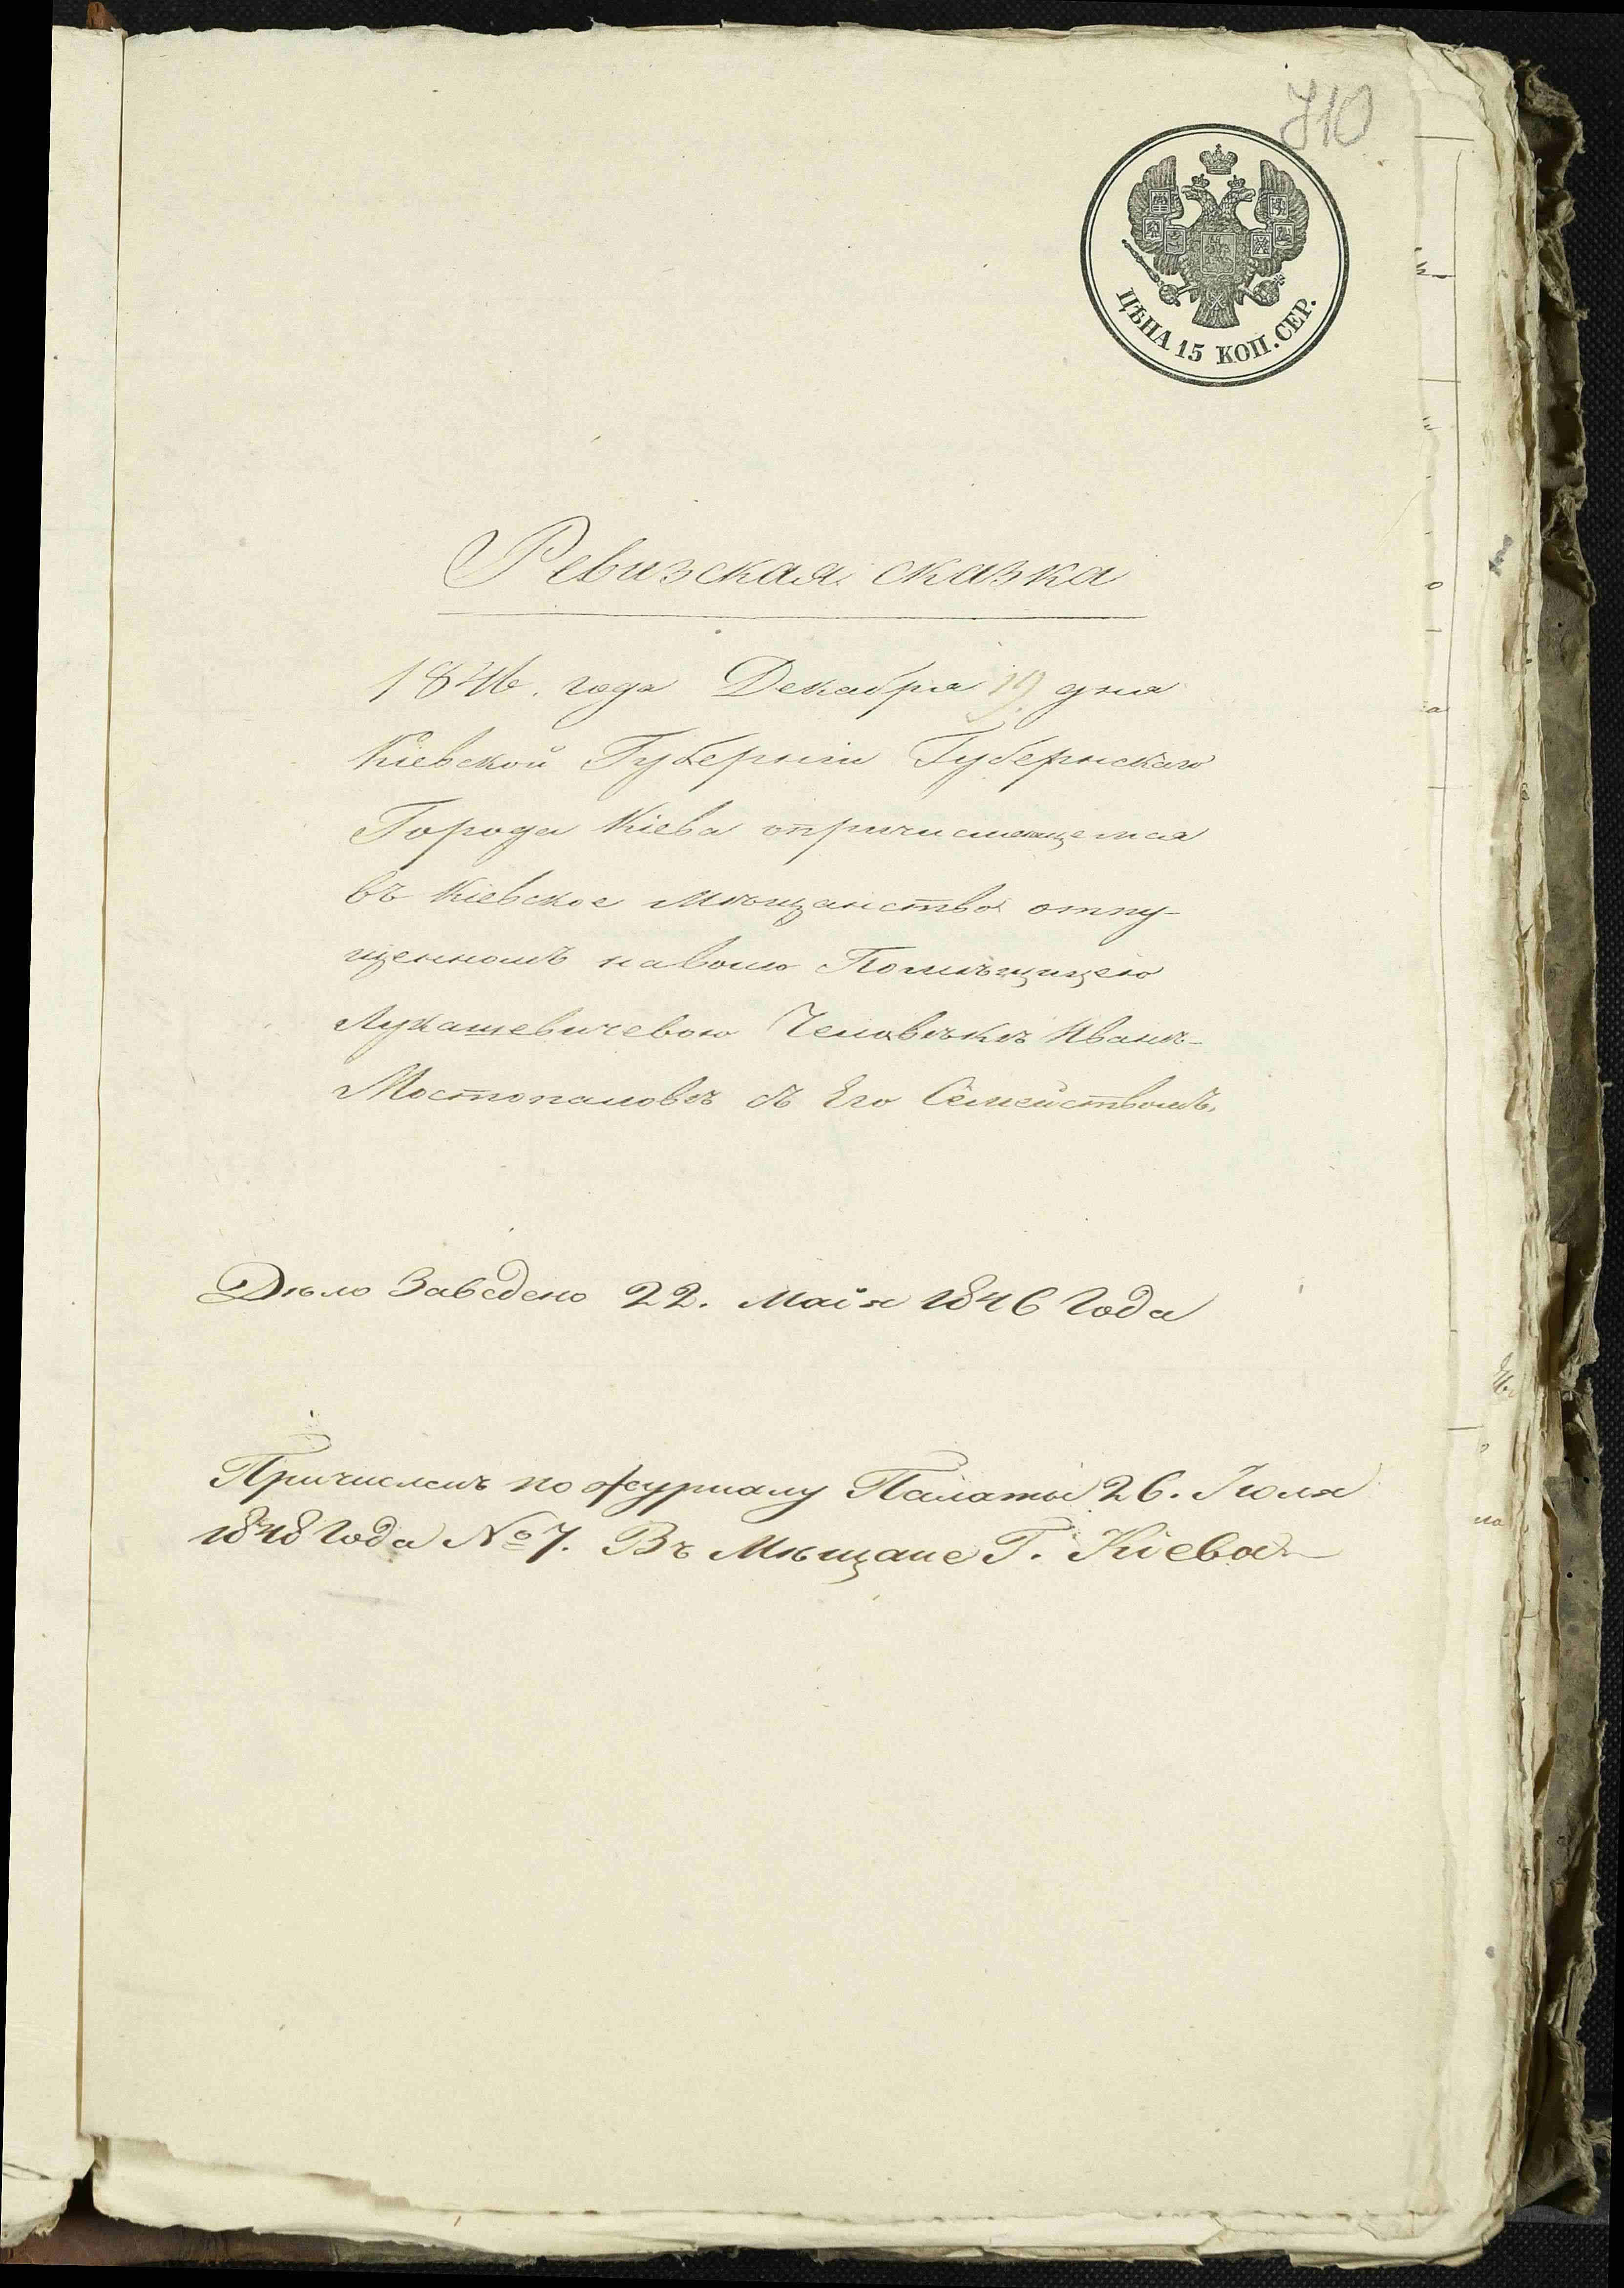 710
ЦѢНА 15 КОП. СЕР.
Ревизская сказка
1846. года Декабря 19 дня
Кіевской Губерніи Губернскаго
Города Кіева опричисляющемся
въ Кіевское Мѣщанство отпу-
щенномъ наволю Помѣщицею
Лукашевичевою Человѣкѣ Иванѣ
Мостопаловѣ съ Его Семействомъ.
Дѣло Заведено 22. Маія 1846 Года
Причисленъ по журналу Палаты 26. Іюля
1848 Года № 7. Въ Мѣщане Г. Кіева